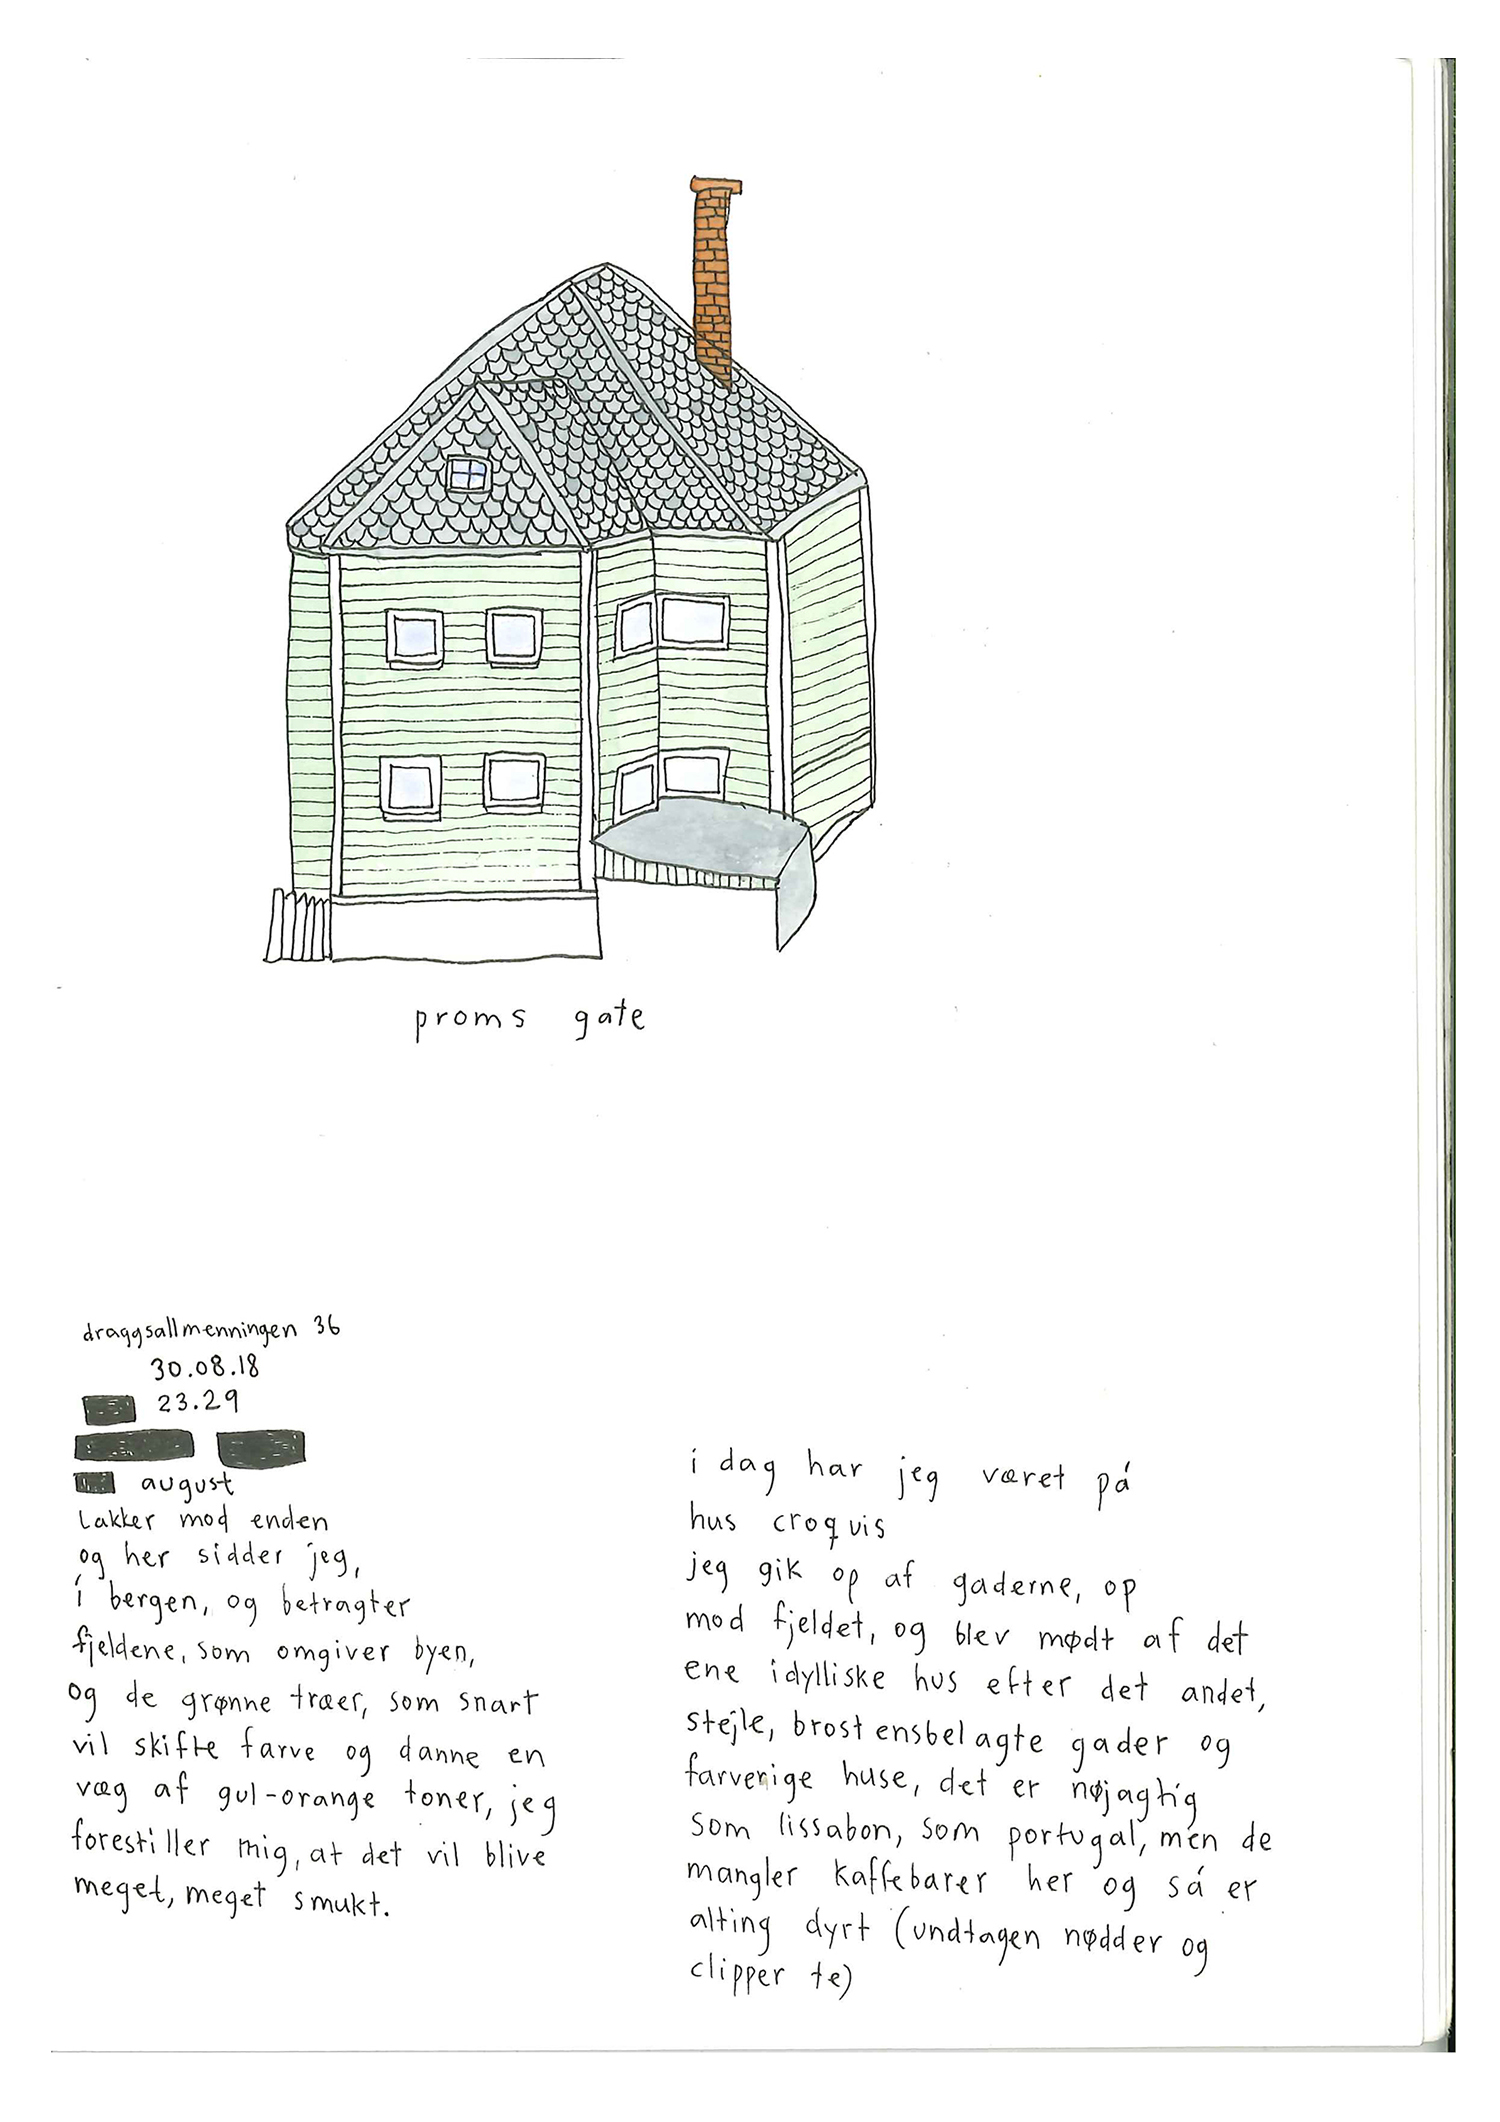 proms gate
draggsallmenningen 36
30.08.18
23.29
august
lakker mod enden
og her sidder jeg,
i bergen, og betragter
fjeldene, som omgiver byen,
og de grønne træer, som snart
vil skifte farve og danne en
væg af gul-orange toner, jeg
forestiller mig, at det vil blive
meget, meget smukt.
i dag har jeg været på
hus croquis
jeg gik op af gaderne, op
mod fjeldet, og blev mødt af det
ene idylliske hus efter det andet,
stejle, brostensbelagte gader og
farverige huse, det er nøjagtig
som lissabon, som portugal, men de
mangler kaffebarer her og så er
alting dyrt (undtagen nødder og
clipper te)